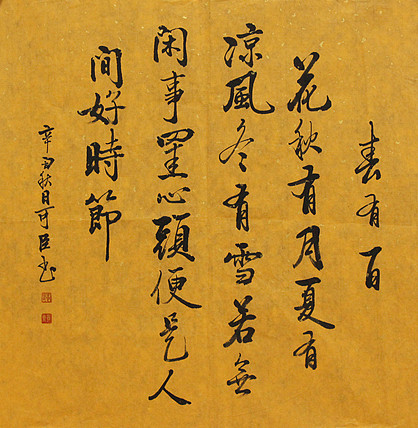 春有百
花秋有月夏有
凉風冬有雪若無
闲事罣心頭便是人
间好時節
辛丑秋日可臣书